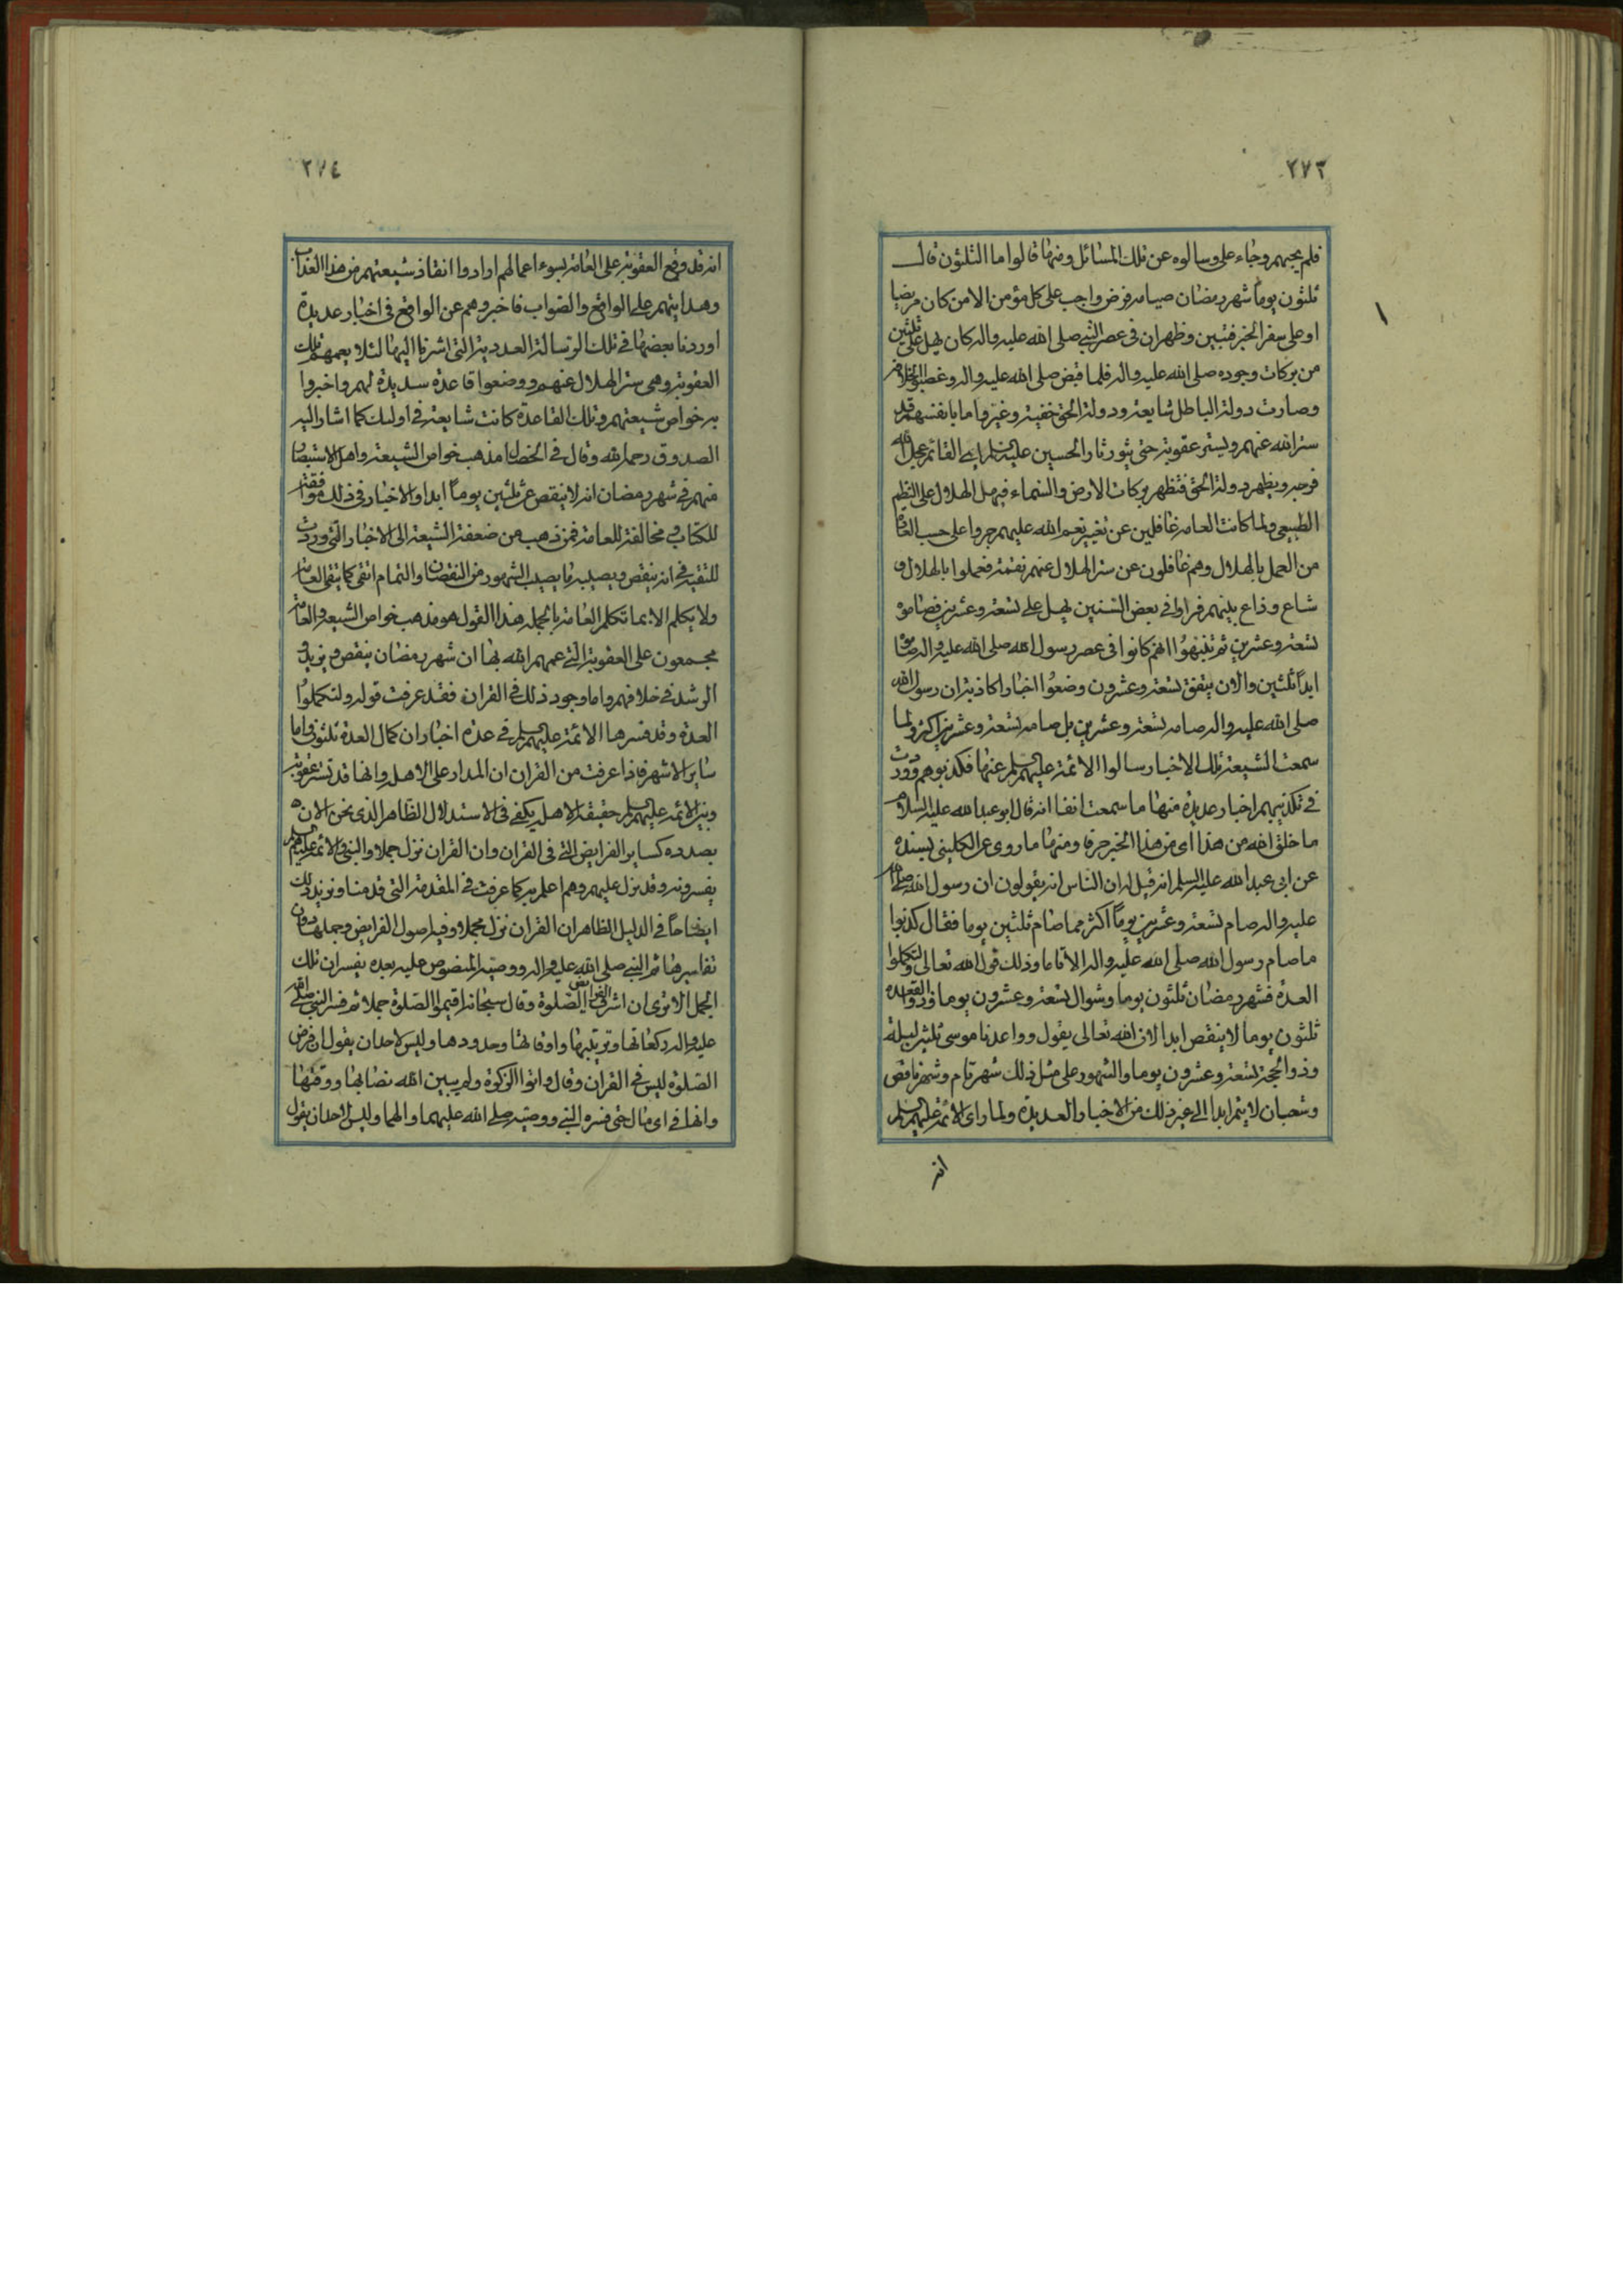 ٢٧٣
فلم يجبهم وجاء علي وسالوه عن تلك المسائل ومنها قالوا ما الثلثون قال
ثلثون يوماً شهر رمضان صيامه فرض واجب على كل مؤمن الا من كان مريضا
او على سفر الخبر فتبين وظهر ان في عصر النبي صلى الله عليه واله كان يهل على ثلثين
من بركات وجوده صلى الله عليه واله فلما قبض صلى الله عليه واله وغصبوا الخلافة
وصارت دولة الباطل شايعة ودولة الحق خفية وغيروا ما بانفسهم قد
ستر الله عنهم ويستر عقوبة حتى يثور ثار الحسين عليه السلم اي القائم عجل الله
فرجه ويظهر دولة الحق فتظهر بركات الارض والسماء فيهل الهلال على النظم
الطبيعي ولما كانت العامة غافلين عن تغيير نعم الله عليهم جروا على حسب العادة
من العمل بالهلال وهم غافلون عن ستر الهلال عنهم نقمة فعملوا بالهلال و
شاع وذاع بينهم فراوا في بعض السنين يهل على تسعة وعشرين فصاموه
تسعة وعشرين ثم تنبهوا انهم كانوا في عصر رسول الله صلى الله عليه واله صاموا
ابداً ثلثين والان يتفق تسعة وعشرون وضعوا اخبارا كاذبة ان رسول الله
صلى الله عليه واله صامه تسعة وعشرين بل صامه تسعة وعشرين اكثر ولما
سمعت الشيعة تلك الاخبار سالوا الائمة عليهم السلم عنها فكذبوهم ووردت
في تكذيبهم اخبار عديدة منها ما سمعت انفا انه قال ابو عبدالله عليه السلام
ما خلق الله من هذا اى من هذا الخبر حرفا ومنها ما روى عن الكليني بسنده
عن ابي عبدالله عليه السلم انه قيل له ان الناس انه يقولون ان رسول الله صلى الله
عليه واله صام تسعة وعشرين يوماً اكثر مما صام ثلثين يوما فقال كذبوا
ما صام رسول الله صلى الله عليه واله الا تاما وذلك قول الله تعالى ولتكملوا
العدة فشهر رمضان ثلثون يوما وشوال تسعة وعشرون يوما وذو القعده
ثلثون يوما لا ينقص ابدا لان الله تعالى يقول وواعدنا موسى ثلثين ليلة
وذو الحجة تسعة وعشرون يوما والشهور على مثل ذلك شهر تام وشهر ناقص
وشعبان لا يتم ابدا الى غير ذلك من الاخبار العديدة ولما راى الائمة عليهم السلم
انه
٢٧٤
انه قد وقع العقوبة على العامة بسوء اعمالهم ارادوا انقاذ شيعتهم من هذا العذاب
وهدايتهم على الواقع والصواب فاخبروهم عن الواقع في اخبار عديدة
اوردنا بعضها في تلك الرسالة العددية التي اشرنا اليها لئلا يعمهم تلك
العقوبة وهى ستر الهلال عنهم ووضعوا قاعدة سديدة لهم واخبروا
به خواص شيعتهم وتلك القاعدة كانت شايعة في اولئك كما اشار اليه
الصدوق رحمه الله وقال في الخصال مذهب خواص الشيعة واهل الاستبصار
منهم في شهر رمضان انه لا ينقص عن ثلثين يوماً ابدا والاخبار في ذلك موافقة
للكتاب ومخالفة للعامة فمن ذهب من ضعفة الشيعة الى الاخبار التى وردت
للتقية في انه ينقص ويصيبه ما يصيب الشهور من النقصان والتمام اتقى كما يتقى العامة
ولا يكلم الا بما تكلم العامة بالجملة هذا القول هو مذهب خواص الشيعة والعامة
مجمعون على العقوبة التي عمهم الله بها ان شهر رمضان ينقص ويزيد و
الرشد في خلافهم واما وجود ذلك في القران فقد عرفت قوله ولتكملوا
العدة وقد فسرها الائمة عليهم السلم في عدة اخبار ان كمال العدة ثلثون واما
ساير الاشهر فاذا عرفت من القران ان المدار على الاهلة وانها قد تستر عقوبة
وبين الائمة عليهم السلم حقيقة الاهلة يكفي في الاستدلال الظاهر الذى نحن الان
بصدده كساير الفرايض التي في القران وان القران نزل جملا والنبي والائمة عليهم السلم
يفسرونه وقد نزل عليهم وهم اعلم به كما عرفت في المقدمة التي قدمنا ونزيد ذلك
ايضاحاً في الدليل الظاهر ان القران نزل مجملا وفيه اصول الفرايض وجملها دون
تفاسيرها ثم النبي صلى الله عليه واله ووصيه المنصوص عليه بعده يفسران تلك
الجمل الا ترى ان اشرف الفرائض الصلوة وقال سبحانه اقيموا الصلوة جملا ثم فسر النبي صلى الله
عليه واله ركعاتها وترتيبها واوقاتها وحدودها وليس لاحد ان يقول ان فرض
الصلوة ليس في القران وقال واتوا الزكوة ولم يبين الله نصابها ووقتها
وانها في اى مال حتى فسره النبي ووصيه صلى الله عليهما والهما وليس لاحد ان يقول